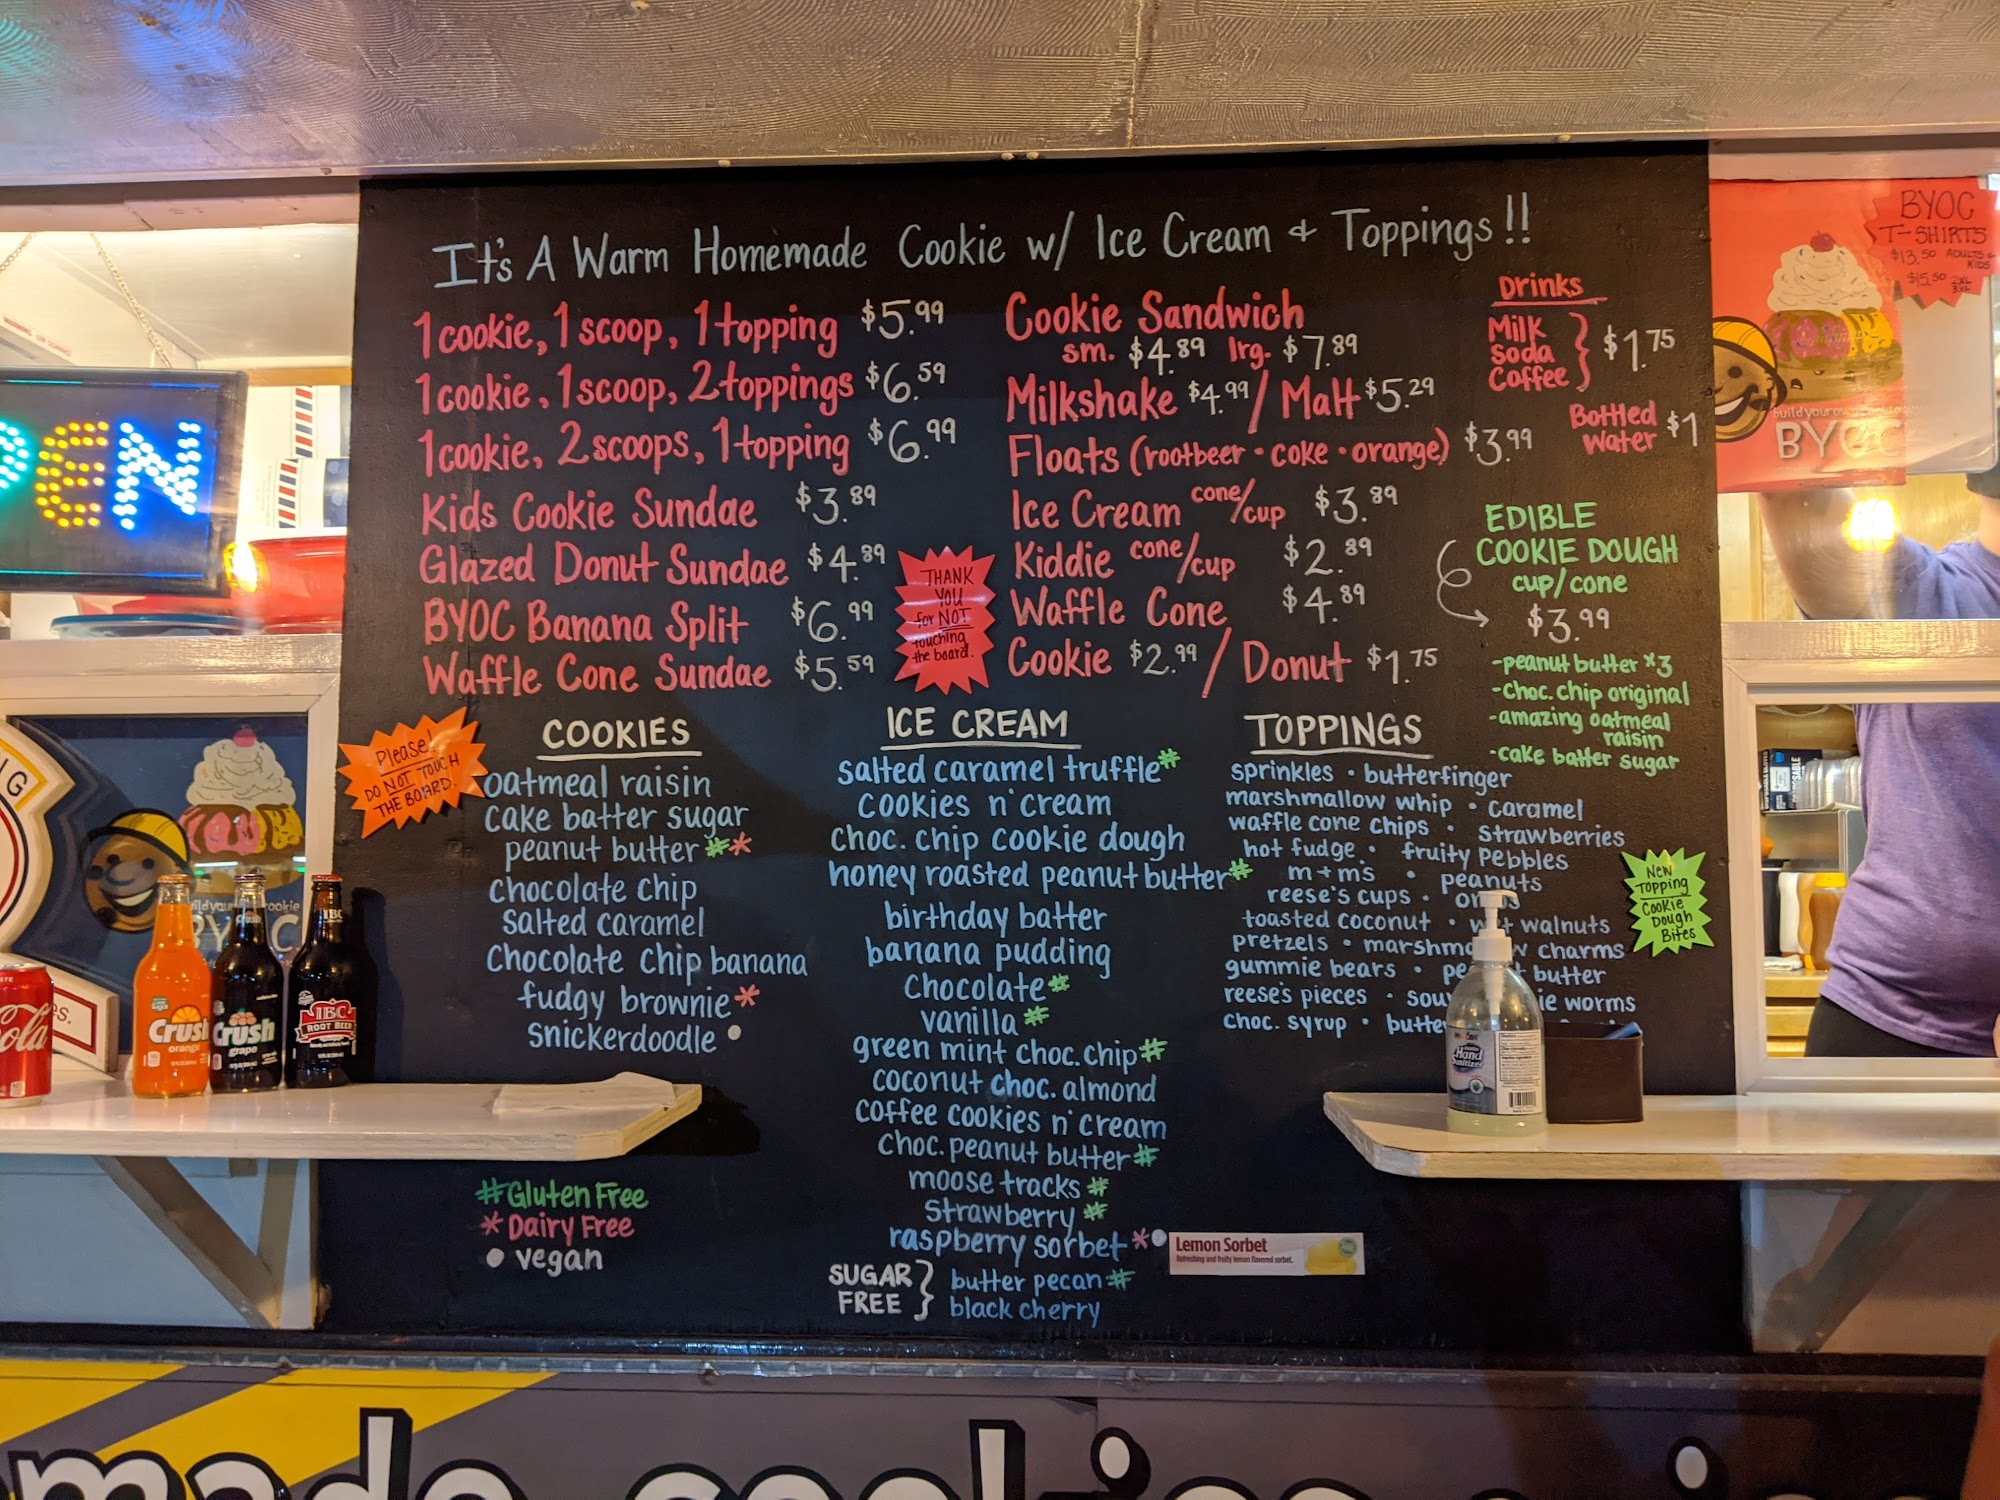 It's A Warm Homemade Cookie w/ Ice Cream + Toppings!!
1 cookie, 1 scoop, 1 topping $5.99
1 cookie, 1 scoop, 2 toppings $6.59
1 cookie, 2 scoops, 1 topping $6.99
Kids Cookie Sundae $3.89
Glazed Donut Sundae $4.89
BYOC Banana Split $6.99
Waffle Cone Sundae $5.59
Cookie Sandwich
sm. $4.89 lrg. $7.89
Milkshake $4.99 / Malt $5.29
Floats (rootbeer · coke · orange) $3.99
Ice Cream cone/cup $3.89
Kiddie cone/cup $2.89
Waffle Cone $4.89
Cookie $2.99 / Donut $1.75
Drinks
Milk
Soda
Coffee
} $1.75
Bottled
Water $1
EDIBLE
COOKIE DOUGH
cup/cone
$3.99
-peanut butter x3
-choc. chip original
-amazing oatmeal
raisin
-cake batter sugar
THANK
YOU
for NOT
touching
the board.
Please!
DO NOT TOUCH
THE BOARD.
COOKIES
oatmeal raisin
cake batter sugar
peanut butter # *
chocolate chip
salted caramel
chocolate chip banana
fudgy brownie *
snickerdoodle •
# Gluten Free
* Dairy Free
• vegan
ICE CREAM
salted caramel truffle #
cookies n' cream
choc. chip cookie dough
honey roasted peanut butter #
birthday batter
banana pudding
chocolate #
vanilla #
green mint choc. chip #
coconut choc. almond
coffee cookies n' cream
choc. peanut butter #
moose tracks #
strawberry #
raspberry sorbet * •
Lemon Sorbet
Refreshing and fruity lemon flavored sorbet.
SUGAR
FREE
} butter pecan #
black cherry
TOPPINGS
sprinkles · butterfinger
marshmallow whip · caramel
waffle cone chips · strawberries
hot fudge · fruity pebbles
m+m's · peanuts
reese's cups ·
toasted coconut · walnuts
pretzels · charms
gummie bears · butter
reese's pieces · worms
choc. syrup ·
New
Topping
Cookie
Dough
Bites
BYOC
T-SHIRTS
$13.50 ADULTS + KIDS
$15.50 2XL 3XL
BYOC
PEN
Crush
orange
Crush
grape
IBC
IBC
ROOT BEER
Hand
Sanitizer
made cookies